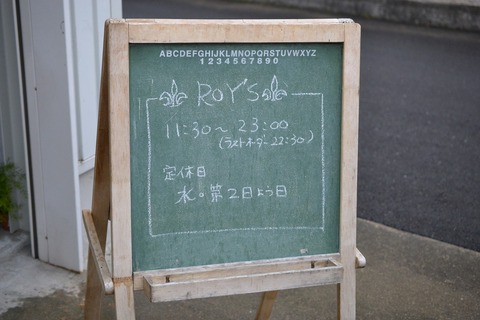 ABCDEFGHIJKLMNOPQRSTUVWXYZ
1234567890
ROY'S
11:30～23:00
(ラストオーダー22:30)
定休日
水。第2日よう日